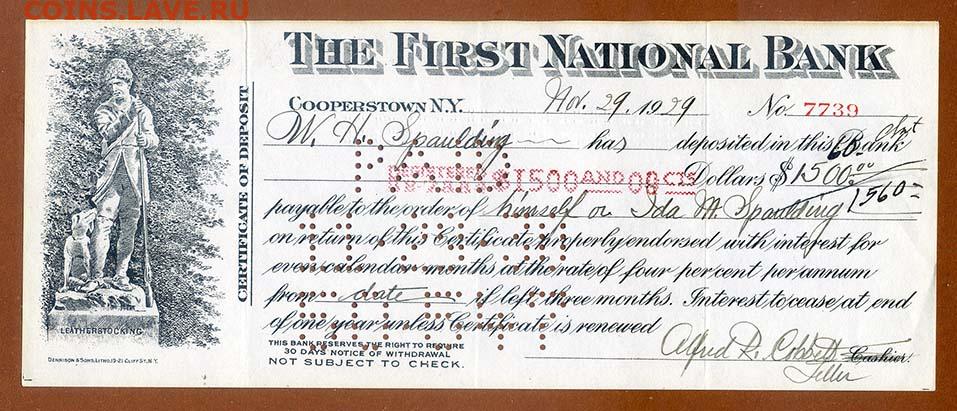 COINS.LAVE.RU
THE FIRST NATIONAL BANK
COOPERSTOWN N.Y. Nov. 29, 1929 No. 7739
W. H. Spaulding has deposited in this Bank
$1500 AND 00 CTS Dollars $1500.00
60.00
1560
payable to the order of himself or Ida M. Spaulding
on return of this Certificate properly endorsed with interest for
even calendar months at the rate of four per cent per annum
from date if left three months. Interest to cease at end
of one year unless Certificate is renewed
THIS BANK RESERVES THE RIGHT TO REQUIRE
30 DAYS NOTICE OF WITHDRAWAL
NOT SUBJECT TO CHECK.
Alfred R. Cobbett Cashier.
Teller
CERTIFICATE OF DEPOSIT
LEATHERSTOCKING
DENNISON & SONS, LITHO. 19-21 CLIFF ST. N.Y.
PAID